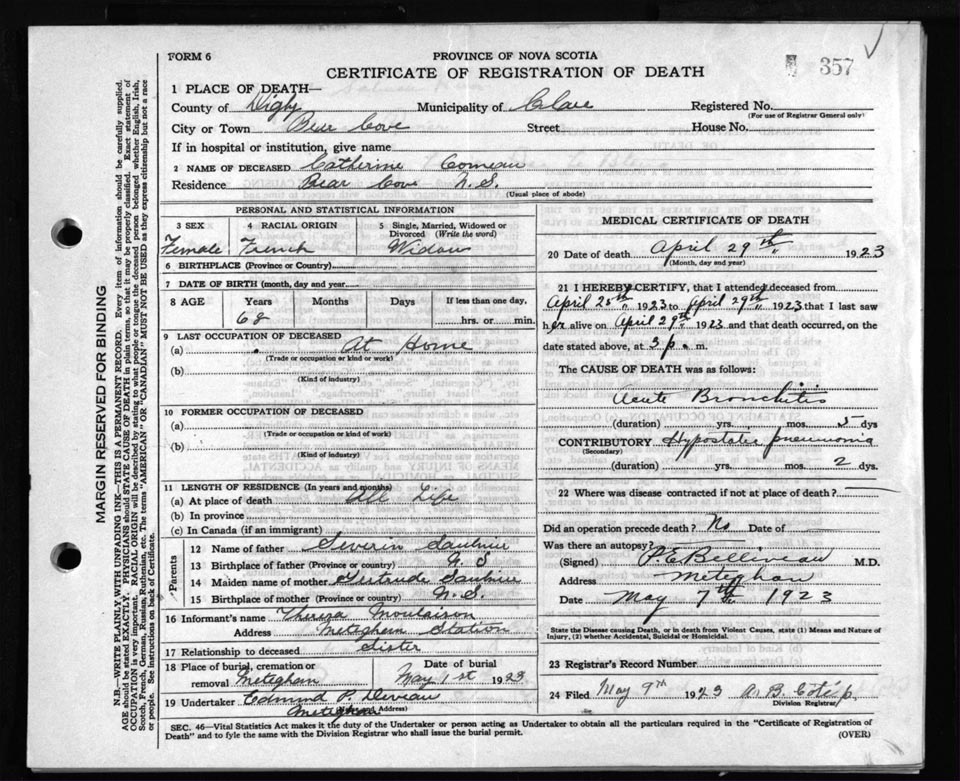 FORM 6
PROVINCE OF NOVA SCOTIA
CERTIFICATE OF REGISTRATION OF DEATH
357
1 PLACE OF DEATH—
County of Digby Municipality of Clare Registered No.
(For use of Registrar General only)
City or Town Bear Cove Street House No.
If in hospital or institution, give name
2 NAME OF DECEASED Catherine Comeau
Residence Bear Cove N.S.
(Usual place of abode)
PERSONAL AND STATISTICAL INFORMATION
3 SEX 4 RACIAL ORIGIN 5 Single, Married, Widowed or Divorced (Write the word)
Female French Widow
6 BIRTHPLACE (Province or Country)
7 DATE OF BIRTH (month, day and year)
8 AGE Years Months Days If less than one day,
68 hrs. or min.
9 LAST OCCUPATION OF DECEASED
(a) At Home
(Trade or occupation or kind or work)
(b)
(Kind of industry)
10 FORMER OCCUPATION OF DECEASED
(a)
(Trade or occupation or kind of work)
(b)
(Kind of industry)
11 LENGTH OF RESIDENCE (In years and months)
(a) At place of death All Life
(b) In province
(c) In Canada (if an immigrant)
Parents
12 Name of father Severin Saulnier
13 Birthplace of father (Province or country) N.S
14 Maiden name of mother Gertrude Saulnier
15 Birthplace of mother (Province or country) N.S.
16 Informant's name Moulaison
Address Meteghan Station
17 Relationship to deceased Sister
18 Place of burial, cremation or removal Meteghan Date of burial May 1st 1923
19 Undertaker Edmund P. Deveau
Meteghan Address)
MEDICAL CERTIFICATE OF DEATH
20 Date of death April 29th 1923
(Month, day and year)
21 I HEREBY CERTIFY, that I attended deceased from
April 25th 1923 to April 29th 1923 that I last saw
her alive on April 29th 1923 and that death occurred, on the
date stated above, at 3 p. m.
The CAUSE OF DEATH was as follows:
Acute Bronchitis
(duration) yrs. mos. 5 dys
CONTRIBUTORY Hypostatic pneumonia
(Secondary)
(duration) yrs. mos. 2 dys.
22 Where was disease contracted if not at place of death?
Did an operation precede death? No Date of
Was there an autopsy?
(Signed) P.E. Belliveau M.D.
Address Meteghan
Date May 7th 1923
State the Disease causing Death, or in death from Violent Causes, state (1) Means and Nature of Injury, (2) whether Accidental, Suicidal or Homicidal.
23 Registrar's Record Number
24 Filed May 9th 1923 A. B.
Division Registrar
SEC. 46—Vital Statistics Act makes it the duty of the Undertaker or person acting as Undertaker to obtain all the particulars required in the "Certificate of Registration of
Death" and to fyle the same with the Division Registrar who shall issue the burial permit.
(OVER)
MARGIN RESERVED FOR BINDING
N.B.—WRITE PLAINLY, WITH UNFADING INK—THIS IS A PERMANENT RECORD. Every item of information should be carefully supplied.
AGE should be stated EXACTLY. PHYSICIANS should STATE CAUSE OF DEATH in plain terms, so that it may be properly classified. Exact statement of
OCCUPATION is very important. RACIAL ORIGIN will be described by stating to what people or tongue the deceased person belonged whether English, Irish,
Scotch, French, German, Russian, Ruthenian, etc. The terms "AMERICAN" OR "CANADIAN" MUST NOT BE USED as they express citizenship but not a race
or people. See instructions on back of Certificate.